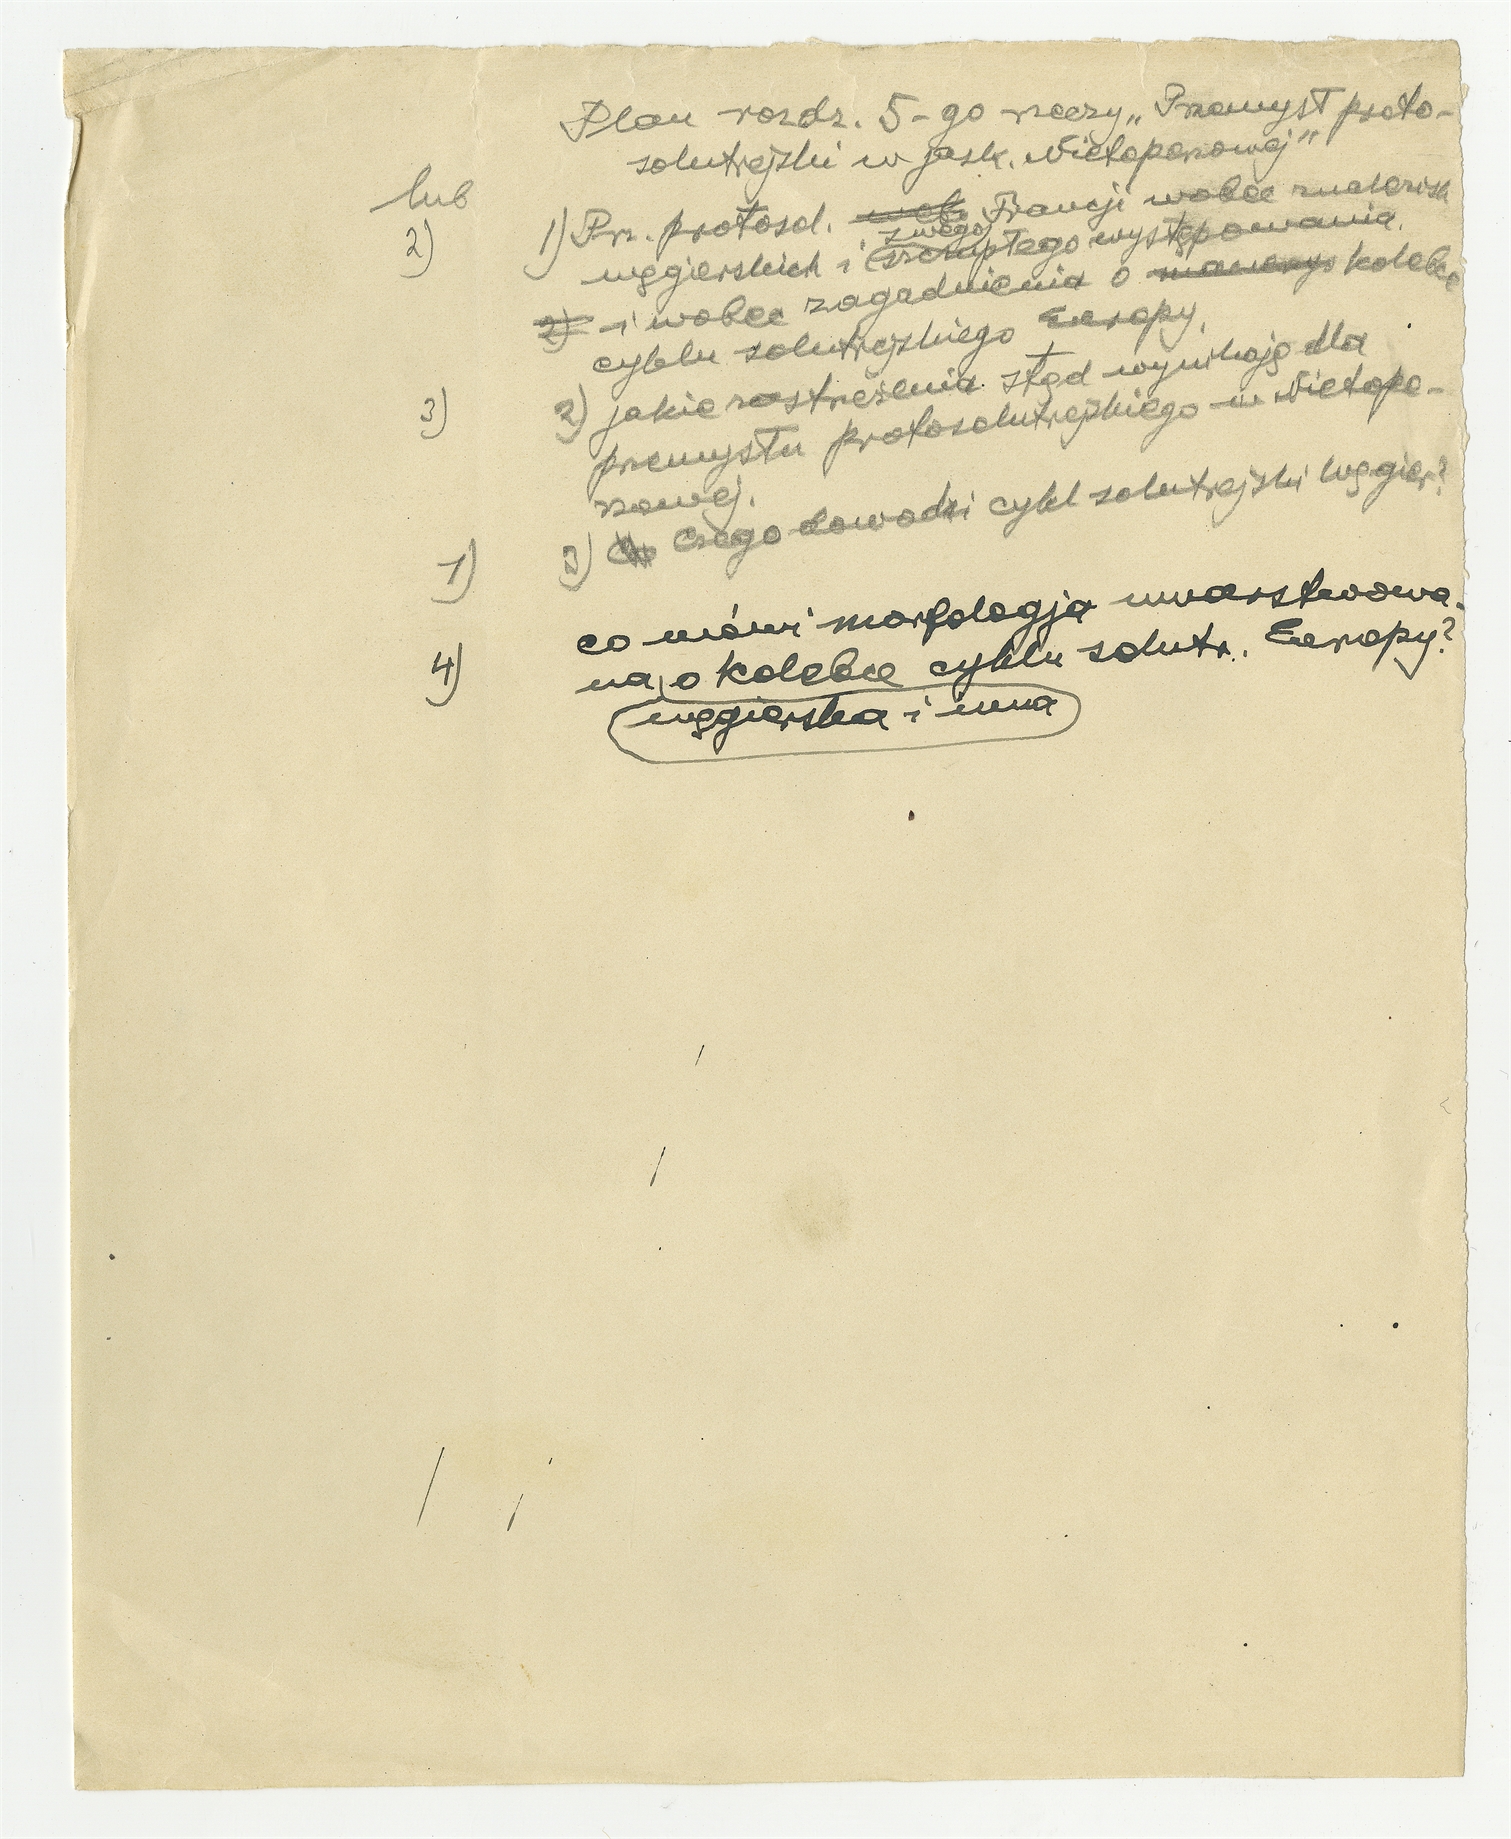 Plan rozdz. 5-go rzeczy „Przemysł proto-
solutrejski w jask. Nietoperzowej"
lub
2) 1) Prz. protosol. wob. Francji wobec znalezisk
swego
węgierskich i szczupłego występowania.
2) i wobec zagadnienia o kolebce
cyklu solutrejskiego Europy.
3) 2) jakie zastrzeżenia stąd wynikają dla
przemysłu protosolutrejskiego w Nietope-
rzowej.
1) 3) Czego dowodzi cykl solutrejski węgier?
co mówi morfologja uwarstwowa-
4) na o kolebce cyklu solutr. Europy?
węgierska i inna